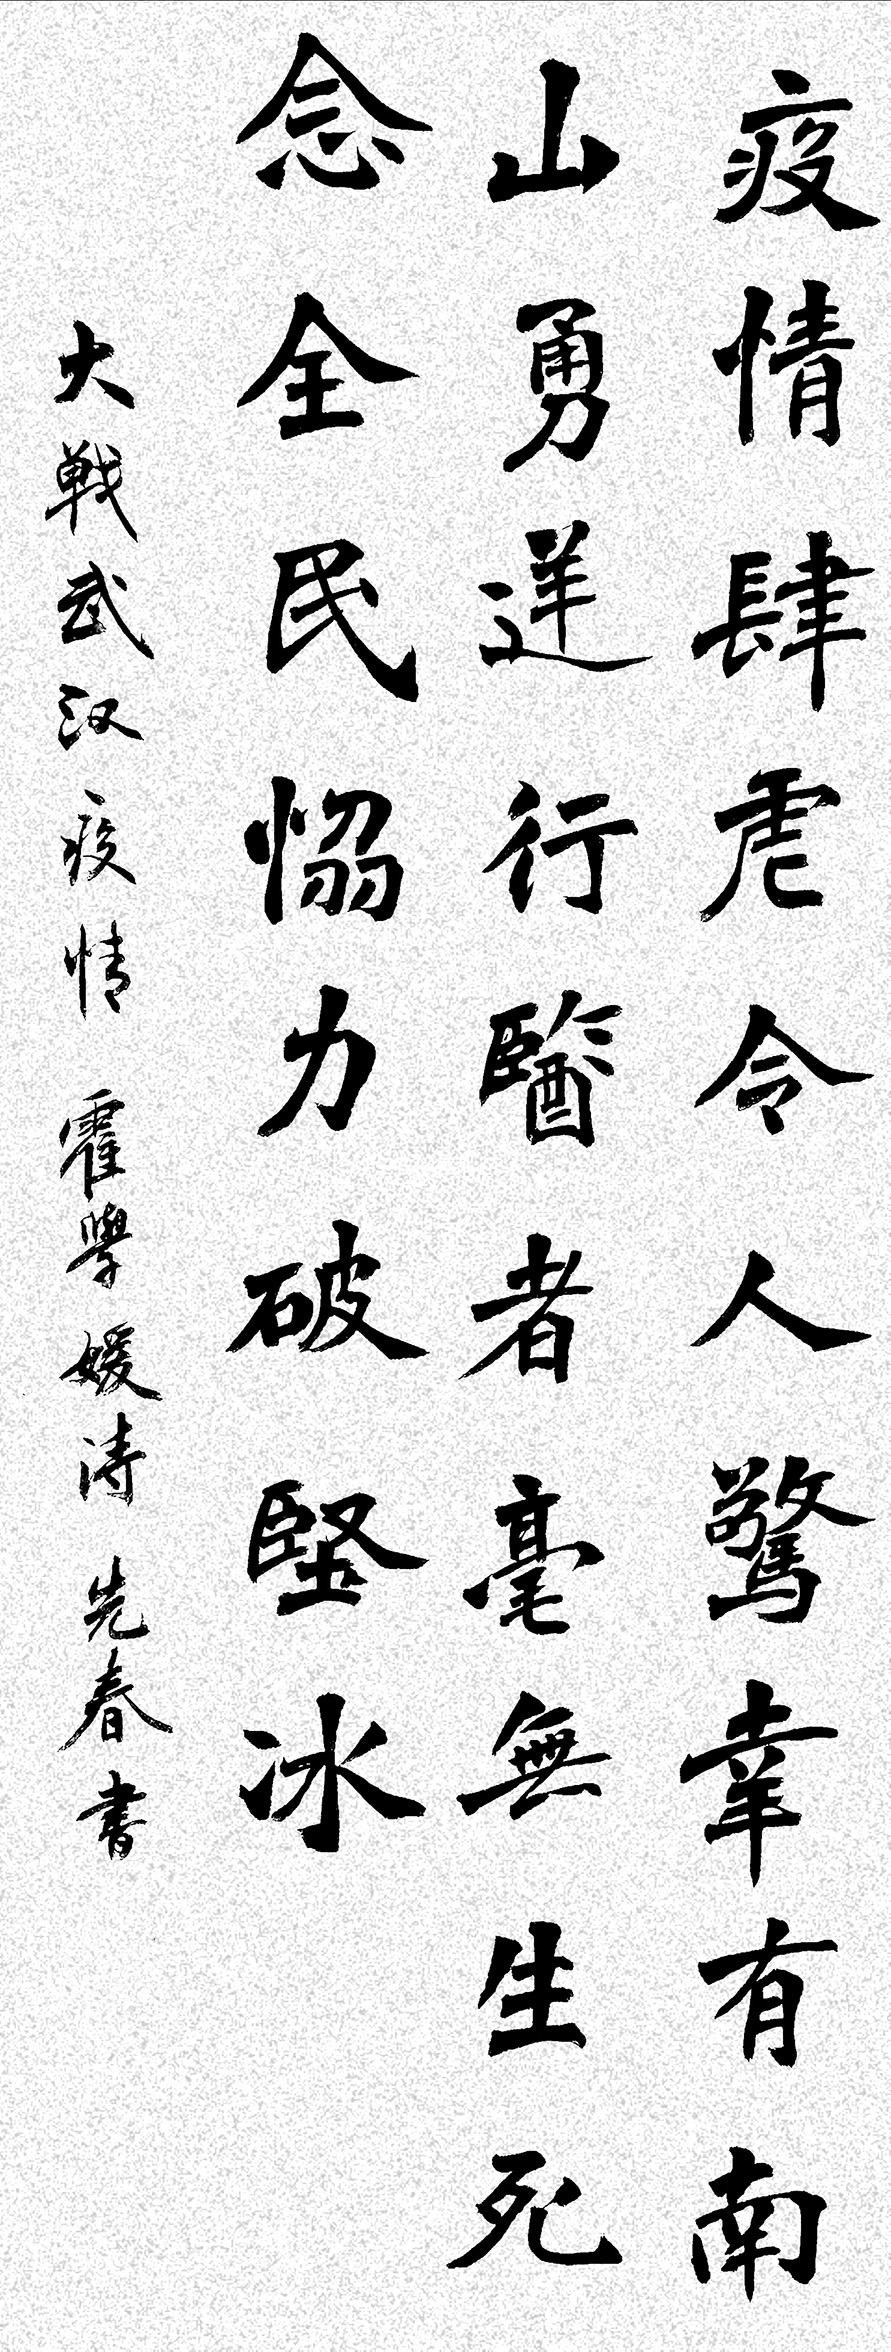 疫情肆虐令人驚幸有南
山勇逆行醫者毫無生死
念全民協力破堅冰
大戰武汉疫情 霍學媛涛 先春書